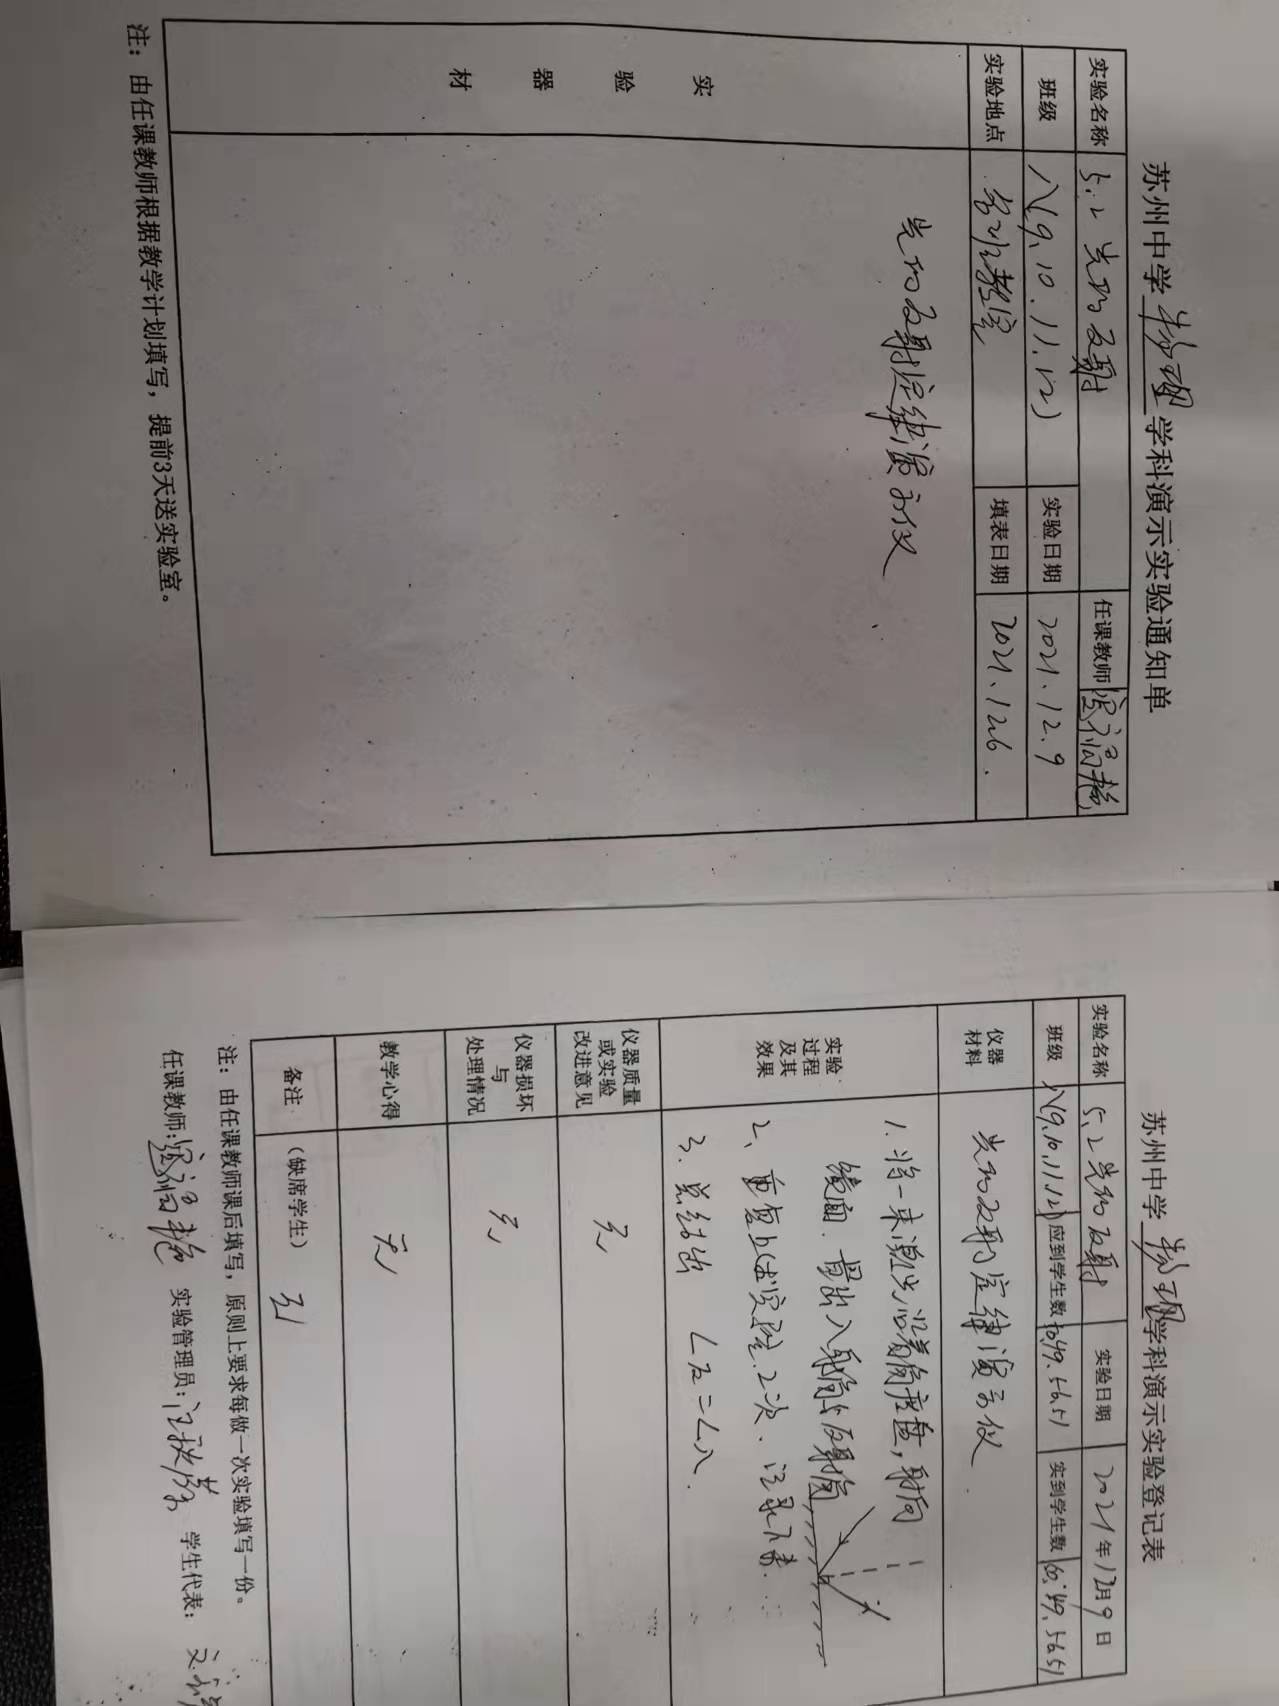 苏州中学物理学科演示实验通知单
实验名称 5.2 光的反射 任课教师
班级 八(9.10.11.12) 实验日期 2021.12.9
实验地点 各班教室 填表日期 2021.12.6.
实验器材
光的反射定律演示仪
注：由任课教师根据教学计划填写，提前3天送实验室。
苏州中学物理学科演示实验登记表
实验名称 5.2 光的反射 实验日期 2021年12月9日
班级 八(9.10.11.12) 应到学生数 49.56.51 实到学生数 49.56.51
仪器材料 光的反射定律演示仪
实验过程及其效果
1. 将一束激光沿着角度盘，射向
镜面. 量出入射角与反射角
2、重复上述实验2次. 记录下来.
3. 总结出 ∠反=∠入.
仪器质量或实验改进意见 无
仪器损坏与处理情况 无
教学心得 无
备注 (缺席学生) 无
注：由任课教师课后填写，原则上要求每做一次实验填写一份。
任课教师: 实验管理员: 学生代表: